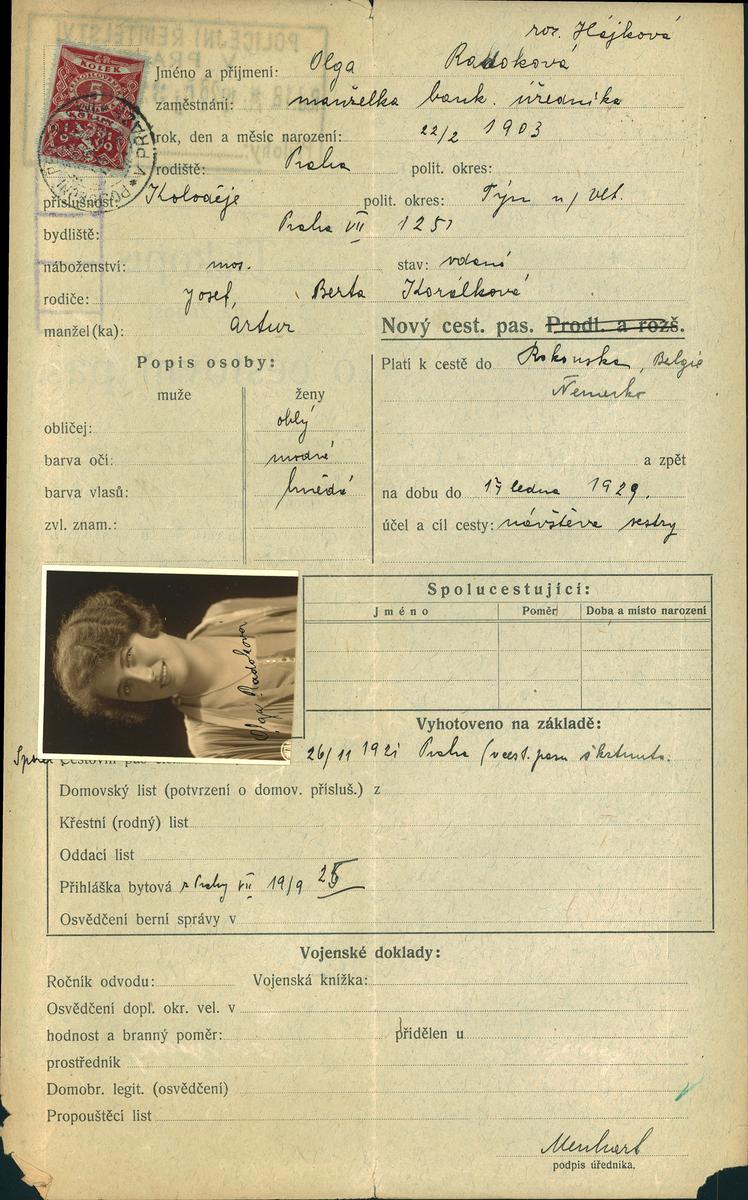 roz. Hájková
POLICEJNÍ ŘEDITELSTVÍ
KOLEK
Jméno a příjmení: Olga Radoková
zaměstnání: manželka bank. úředníka
rok, den a měsíc narození: 22/2 1903
rodiště: Praha polit. okres:
příslušnost: Koloděje polit. okres: Týn n/ Vlt.
bydliště: Praha VII 1251
náboženství: mos. stav: vdaná
rodiče: Josef, Berta Korálková
manžel(ka): Artur
Nový cest. pas. Prodl. a rozš.
Popis osoby:
muže ženy
obličej: oblý
barva očí: modré
barva vlasů: hnědé
zvl. znam.:
Platí k cestě do Rakouska, Belgie
Německo
a zpět
na dobu do 17 ledna 1929.
účel a cíl cesty: návštěva sestry
Olga Radoková
Spolucestující:
Jméno Poměr Doba a místo narození
Vyhotoveno na základě:
26/11 1921 Praha
Domovský list (potvrzení o domov. přísluš.) z
Křestní (rodný) list
Oddací list
Přihláška bytová z Prahy VII 19/9 25
Osvědčení berní správy v
Vojenské doklady:
Ročník odvodu: Vojenská knížka:
Osvědčení dopl. okr. vel. v
hodnost a branný poměr: přidělen u
prostředník
Domobr. legit. (osvědčení)
Propouštěcí list
Menhart
podpis úředníka.